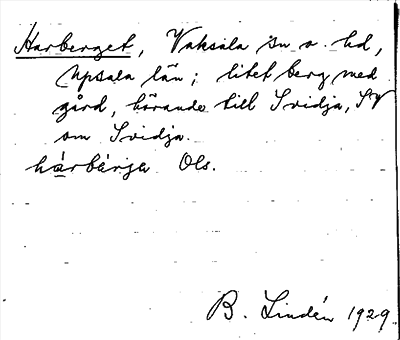 Harberget, Vaksala sn o. hd,
Upsala län; litet berg med
gård, hörande till Svidja, SV
om Svidja.
hárbàrja Ols.
B. Lindén 1929.